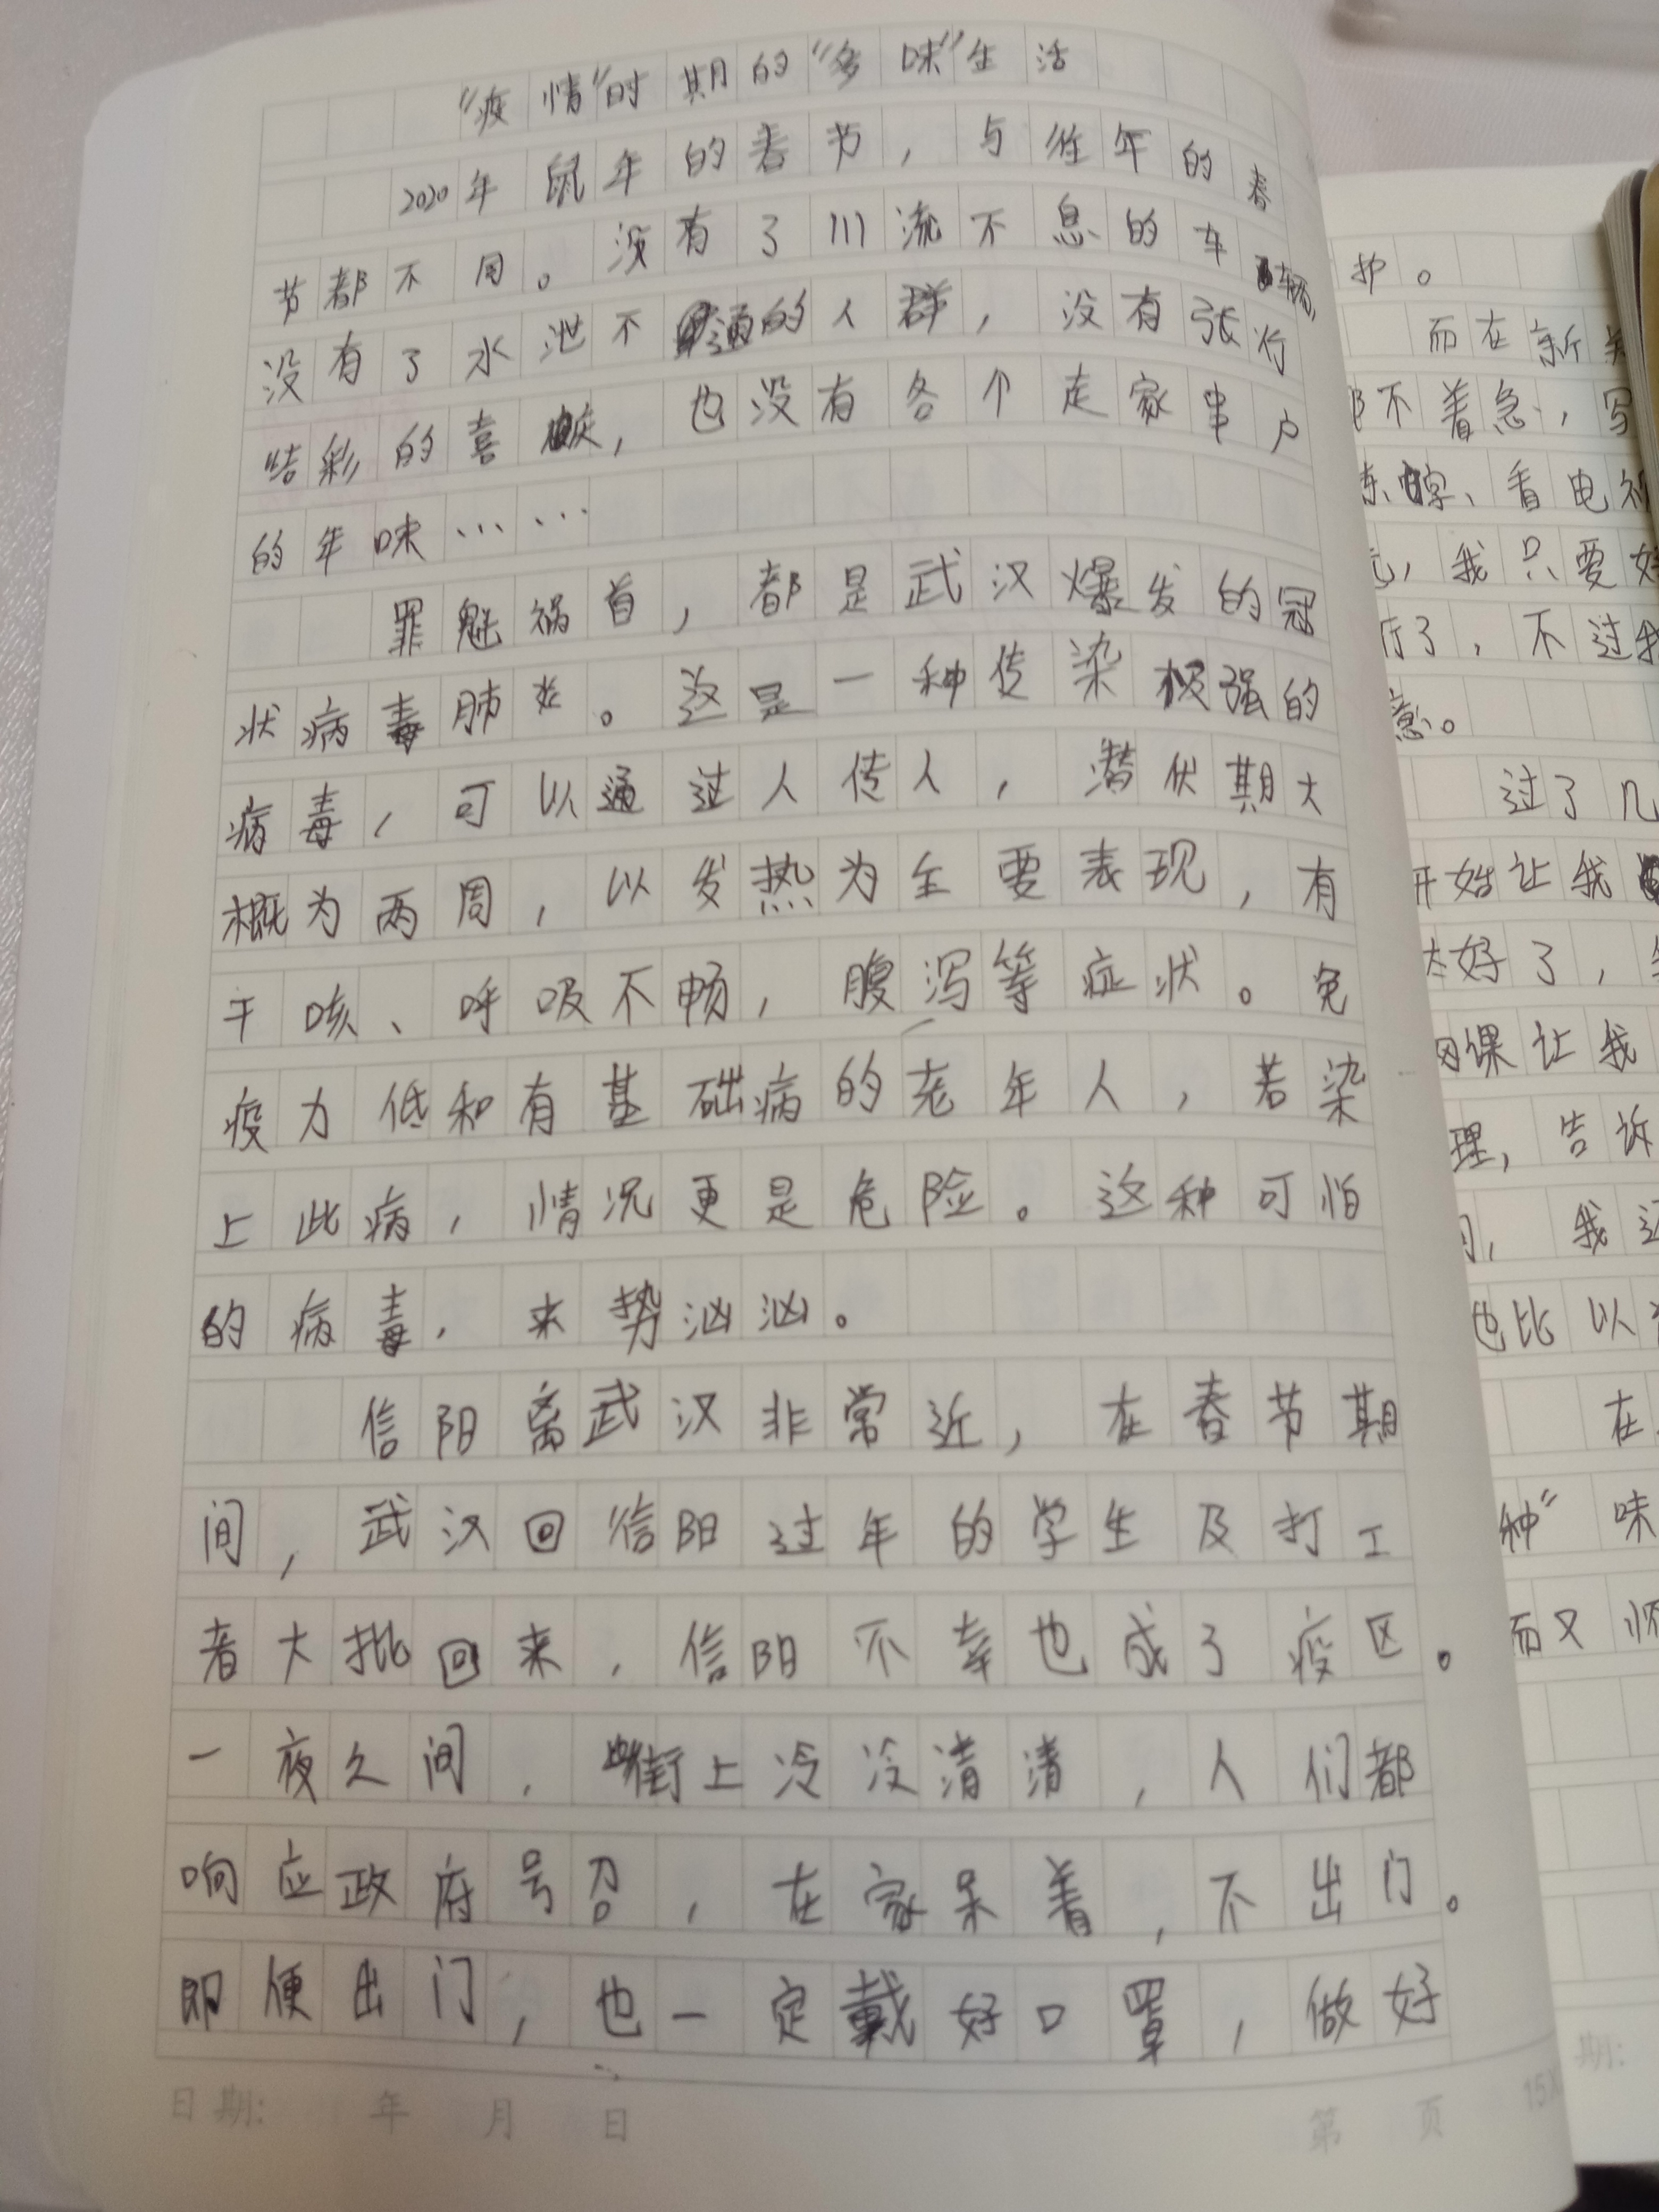 “疫情”时期的“多味”生活
2020年鼠年的春节，与往年的春
节都不同。没有了川流不息的车辆，
没有了水泄不通的人群，没有张灯
结彩的喜庆，也没有各个走家串户
的年味……
罪魁祸首，都是武汉爆发的冠
状病毒肺炎。这是一种传染极强的
病毒，可以通过人传人，潜伏期大
概为两周，以发热为主要表现，有
干咳、呼吸不畅，腹泻等症状。免
疫力低和有基础病的老年人，若染
上此病，情况更是危险。这种可怕
的病毒，来势汹汹。
信阳离武汉非常近，在春节期
间，武汉回信阳过年的学生及打工
者大批回来，信阳不幸也成了疫区。
一夜之间，街上冷冷清清，人们都
响应政府号召，在家呆着，不出门。
即便出门，也一定戴好口罩，做好
日期： 年 月 日
第 页
护。
而在新
不着急，写
字、看电视
，我只要好
行了，不过我
意。
过了几
开始让我
太好了，
网课让我
理，告诉
，我还
也比以
在
种”味
而又怀
期：